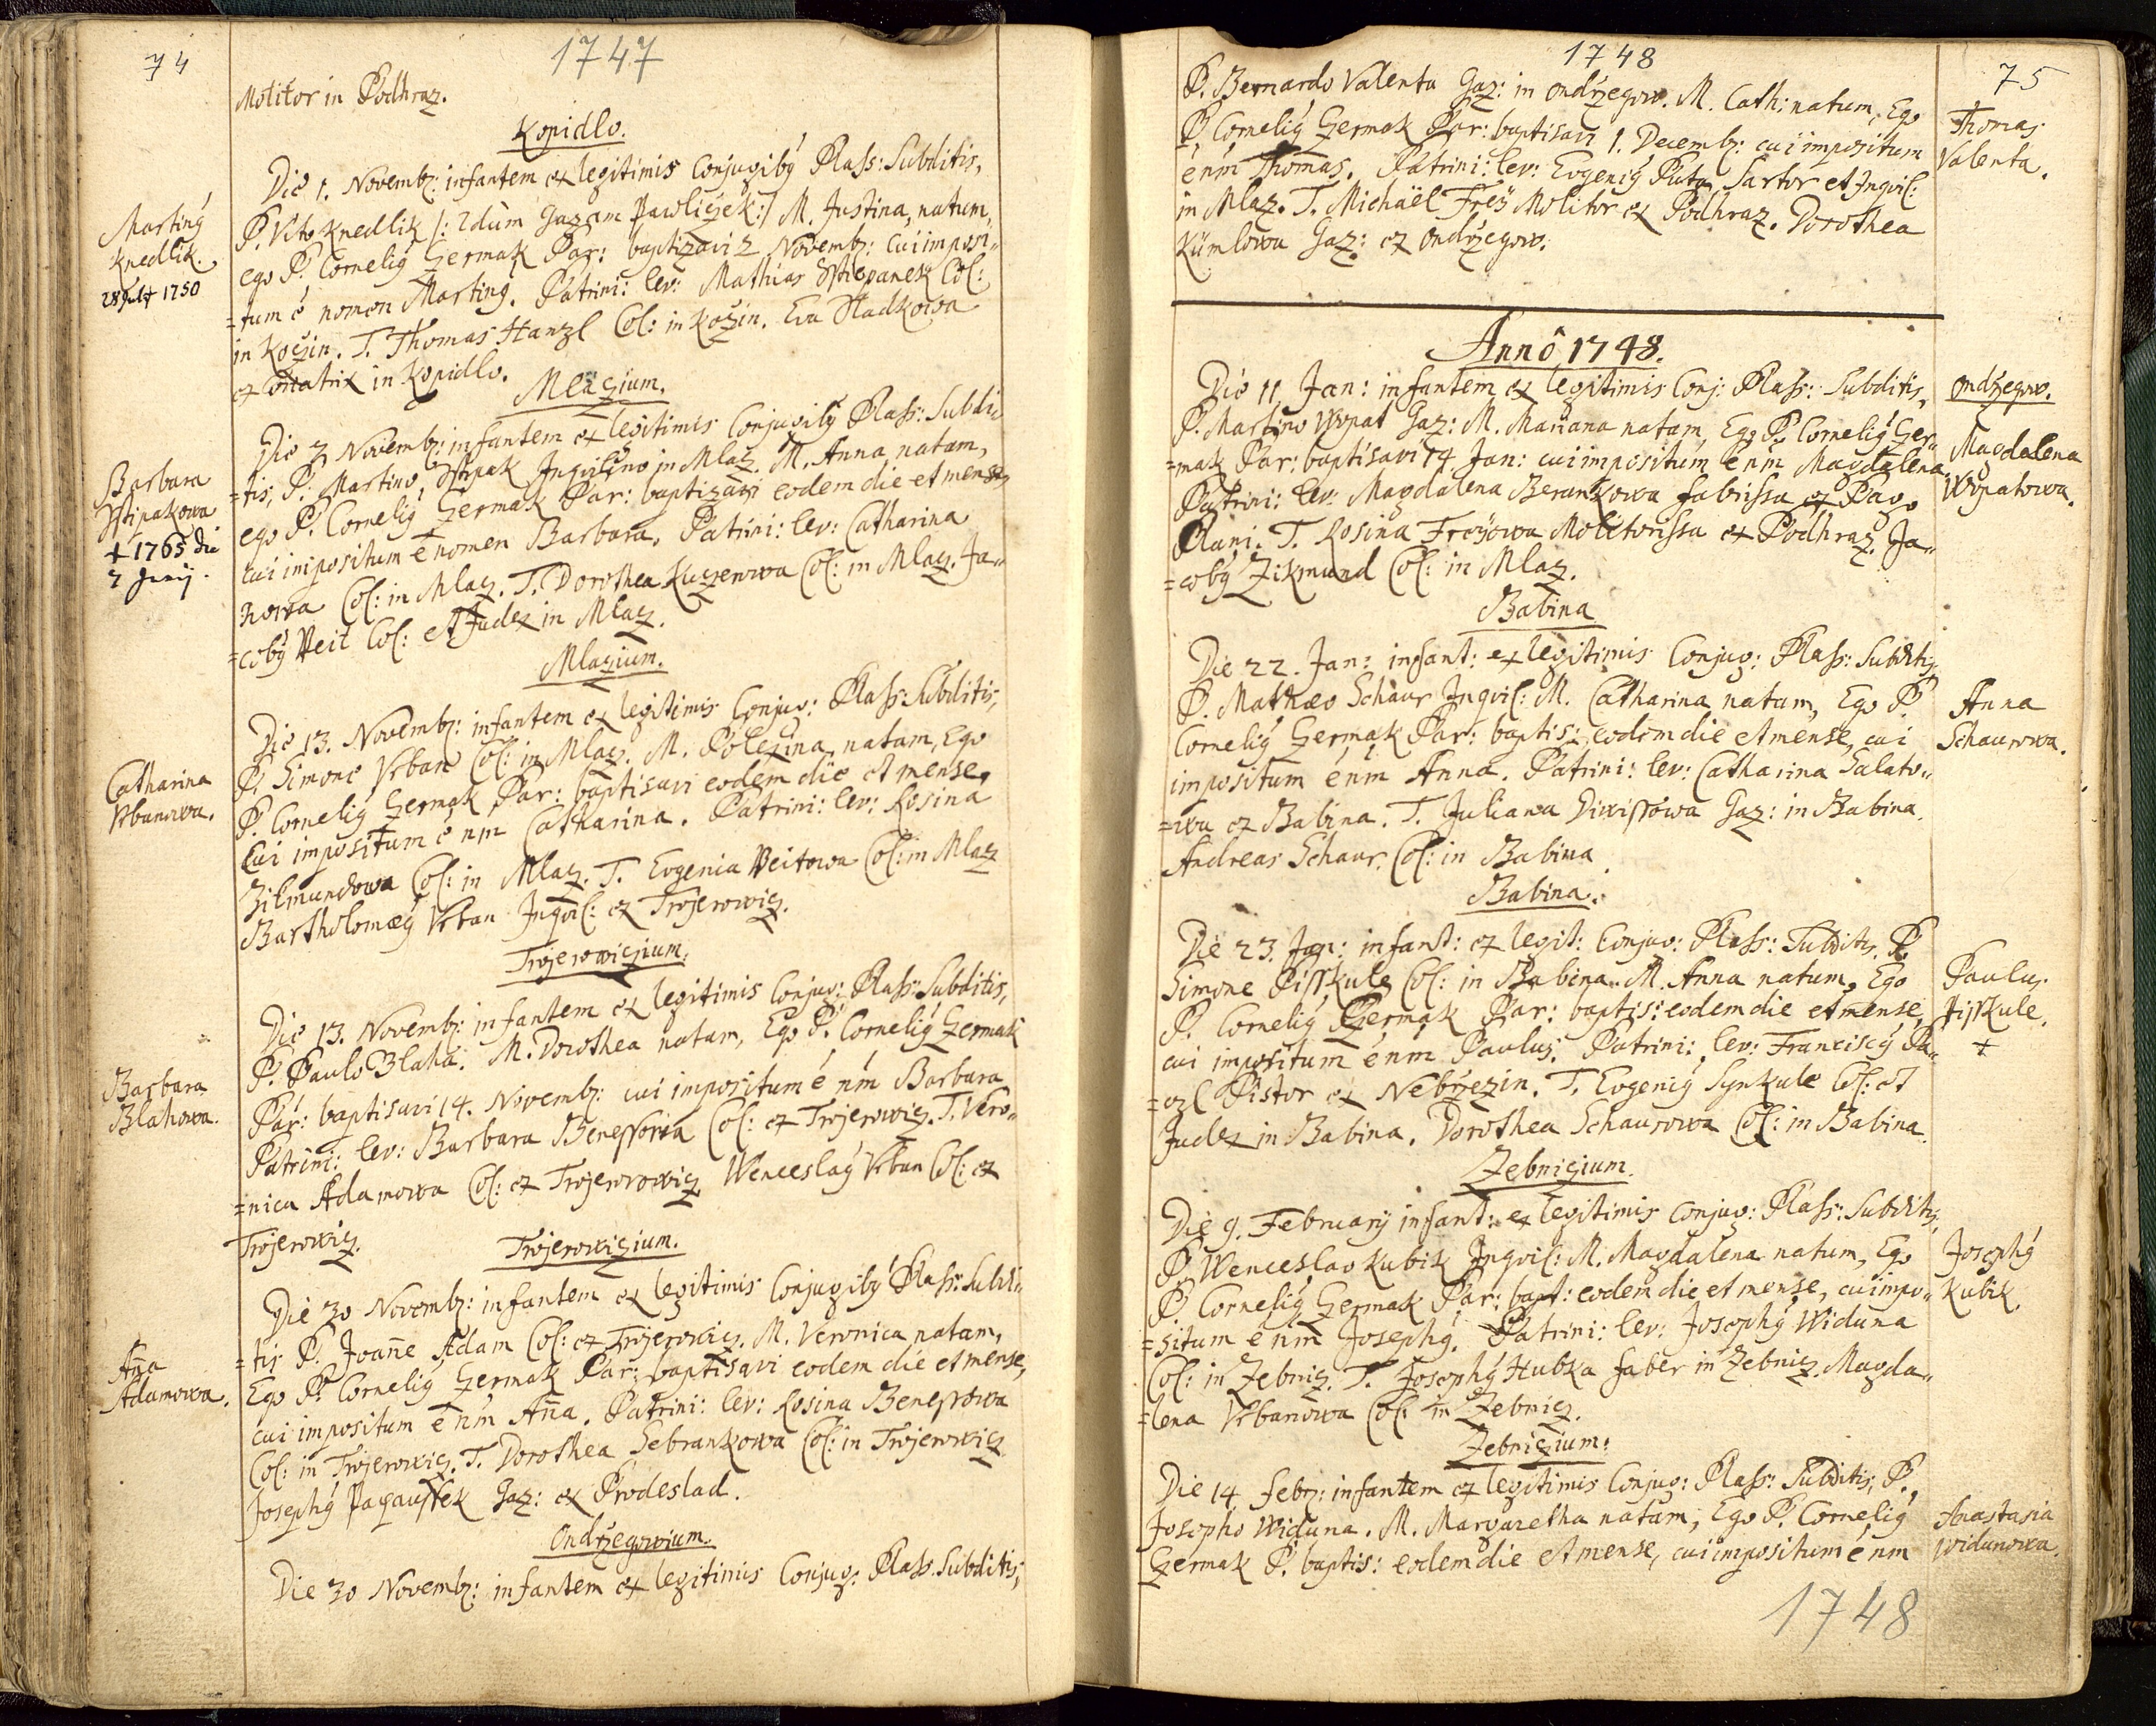 74
1747
Molitor in Podhraz.
Kopidlo.
Martinꝰ
Knedlik.
28 Jul † 1750
Die 1. Novemb: infantem ex legitimis Conjugibꝰ Plass: Subditis,
P. Vito Knedlik /: 2dùm Gazam Pawliczek :/ M. Justina, natum,
ego P. Corneliꝰ Czermak Par: baptizavi 2 Novemb: Cui imposi„
=tum ē nomen Martinꝰ. Patrini: lev: Mathias Sstiepanek Col:
in Koczin. T. Thomas Hanzl Col: in Kozin. Eva Hladkowa
ex in Kopidlo.
Mlazium.
Barbara
Sstipakowa
† 1765 die
2 Junij.
Die 3 Novemb: infantem ex legitimis Conjugibꝰ Plass: Subdi„
=tis, P. Martino Sstipak Inquilino in Mlaz. M. Anna natam,
ego P. Corneliꝰ Czermak Par: baptizavi eodem die et mense,
cui impositum ē nomen Barbara. Patrini: lev: Catharina
nowa Col: in Mlaz. T. Dorothea Kuczerowa Col: in Mlaz. Ja„
=cobꝰ Veit Col: et Judex in Mlaz.
Mlazium.
Catharina
Vrbanowa.
Die 13. Novemb: infantem ex legitimis Conjug: Plass: Subditis,
P. Simone Vrban Col: in Mlaz. M. Polexina, natam, Ego
P. Corneliꝰ Czermak Par: baptisavi eodem die et mense,
Cui impositum ē nm Catharina. Patrini: lev: Rosina
Zikmundowa Col: in Mlaz. T. Evgenia Veitowa Col: in Mlaz
Bartholomæꝰ Vrban Inqvil: ex Trojerowicz.
Trojerowiczium.
Barbara
Blahowa.
Die 13. Novemb: infantem ex legitimis Conjug: Plass: Subditis,
P. Paulo Blaha. M. Dorothea natam, Ego P. Cornelij Czermak
Par: baptisavi 14. Novemb: cui impositum ē nm Barbara
Patrini: lev: Barbara Benessowa Col: ex Trojerowicz. T. Vero„
=nica Adamowa Col: ex Trojerowicz Wenceslaꝰ Vrban Col: ex
Trojerowicz.
Trojerowiczium.
Aña
Adamowa.
Die 30 Novemb: infantem ex legitimis Conjugibꝰ Plass: Subdi„
=tis P. Joañe Adam Col: ex Trojerowicz. M. Veronica natam,
Ego P. Cornelij Czermak Par: baptisavi eodem die et mense,
cui impositum ē nm Aña. Patrini: lev: Rosina Benessowa
Col: in Trojerowicz. T. Dorothea Sebrankowa Col: in Trojerowicz
Josephꝰ Gaz: ex Prodeslad.
Ondrzegowium.
Die 30 Novemb: infantem ex legitimis Conjug: Plass. Subditis,
1748
75
Thomas
Valenta.
P. Bernardo Valenta Gaz: in Ondrzegow. M. Cath: natum, Ego
P. Cornelij Czermak Par: baptisavi 1. Decemb: cui impositum
ē nm Thomas. Patrini: lev: Evgeniꝰ Puta Sartor et Inqvil:
in Mlaz. T. Michaël Freÿ Molitor ex Podhraz. Dorothea
Kümlowa Gaz: ex Ondrzegow.
Annô 1748.
Ondrzegow.
Magdalena
Wopatowa.
Die 11 Jan: infantem ex legitimis Conj: Plass: Subditis,
P. Martino Wopat Gaz: M. Mariana natam, Ego P. Cornelij Czer„
=mak Par: baptisavi 14 Jan: cui impositum ē nm Magdalena
Patrini: lev: Magdalena Berankowa fabrissa ex Pago
Plani. T. Rosina Freÿowa Molitorissa ex Podhraz. Ja„
=cobꝰ Zikmund Col: in Mlaz.
Babina
Anna
Schaurowa.
Die 22. Jan: infant: ex legitimis Conjug: Plass: Subditis
P. Mathæo Schaur Inqvil: M. Catharina natam, Ego P.
Cornelij Czermak Par: baptis: eodem die et mense, cui
impositum ē nm Anna. Patrini: lev: Catharina Salato„
=wa ex Babina. T. Juliana Diwissowa Gaz: in Babina.
Andreas Schaur Col: in Babina
Babina.
Paulus
Pisskule.
†
Die 23. Jan: infant: ex legit: Conjug: Plass: Subditis, P.
Simone Pisskule Col: in Babina. M. Anna natum, Ego
P. Cornelij Czermak Par: baptis: eodem die et mense,
cui impositum ē nm Paulus. Patrini: lev: Franciscꝰ Pa„
=wzl Pistor ex Nebrzezin. T. Evgenij Synkule Col: et
Judex in Babina. Dorothea Schaurowa Col: in Babina.
Zebnizium
Josephꝰ
Kubik.
Die 9. Februarij infant: ex legitimis Conjug: Plass: Subditis
P. Wenceslao Kubik Inqvil: M. Magdalena natum, Ego
P. Cornelij Czermak Par: bapt: eodem die et mense, cui impo„
=situm ē nm Josephꝰ. Patrini: lev: Josephꝰ Widuna
Col: in Zebniz. T. Josephꝰ Hubka faber in Zebniz. Magda„
=lena Vrbanowa Col: in Zebniz.
Zebnizium.
Anastasia
Widunowa.
Die 14 febr: infantem ex legitimis Conjug: Plass: Subditis, P.
Josepho Widuna. M. Margaretha natam, Ego P. Cornelij
Czermak P. baptis: eodem die et mense, cui impositum ē nm
1748